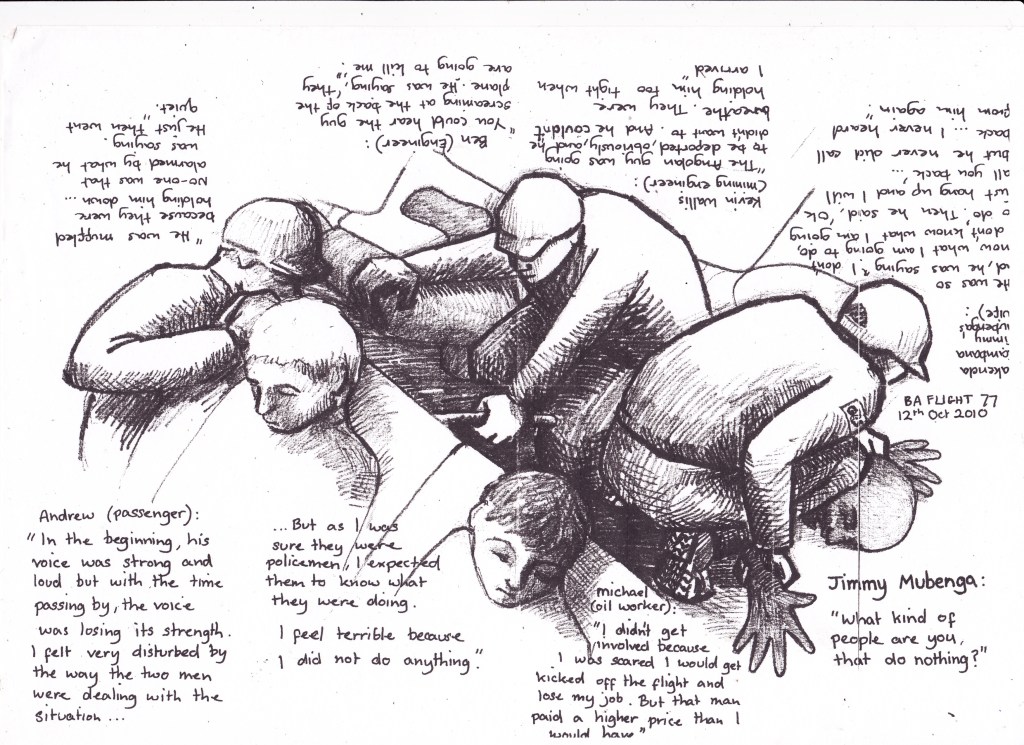 "He was muffled
because they were
holding him down ...
no-one was that
alarmed by what he
was saying.
He just then went
quiet.
Ben (Engineer):
"You could hear the guy
screaming at the back of the
plane. He was saying, 'they
are going to kill me.
Kevin Wallis
(mining engineer):
"The Angolan guy was going
to be deported, obviously, and he
didn't want to do. And he couldn't
breathe. They were
holding him too tight when
I arrived"
akenda
ambana
jimmy
ubenga's
wife):
He was so
he was saying 'I don't
now what I am going to do,
don't know what I am going
o do. Then he said, 'Ok
hang up and I will
all you back'...
but he never did call
back ... I never heard
from him again"
BA FLIGHT 77
12th Oct 2010
Andrew (passenger):
"In the beginning, his
voice was strong and
loud but with the time
passing by, the voice
was losing its strength.
I felt very disturbed by
the way the two men
were dealing with the
situation ...
... But as I was
sure they were
policemen, I expected
them to know what
they were doing.
I feel terrible because
I did not do anything."
michael
(oil worker):
"I didn't get
involved because
I was scared I would get
kicked off the flight and
lose my job. But that man
paid a higher price than I
would have"
Jimmy Mubenga:
"What kind of
people are you,
that do nothing?"